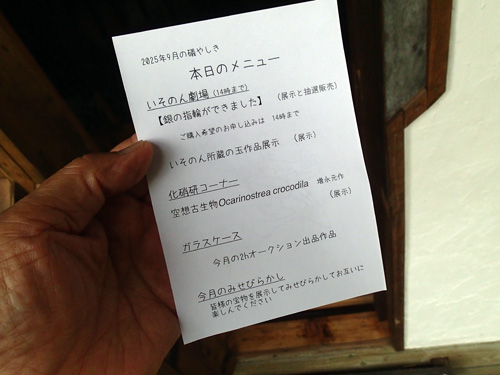 2025年9月の礒やしき
本日のメニュー
いそのん劇場 (14時まで)
【銀の指輪ができました】 (展示と抽選販売)
ご購入希望のお申し込みは 14時まで
いそのん所蔵の玉作品展示 (展示)
化硝研コーナー
空想古生物Ocarinostrea crocodila 増永元作
(展示)
ガラスケース
今月の2hオークション出品作品
今月のみせびらかし
皆様の宝物を展示してみせびらかしてお互いに
楽しんでください